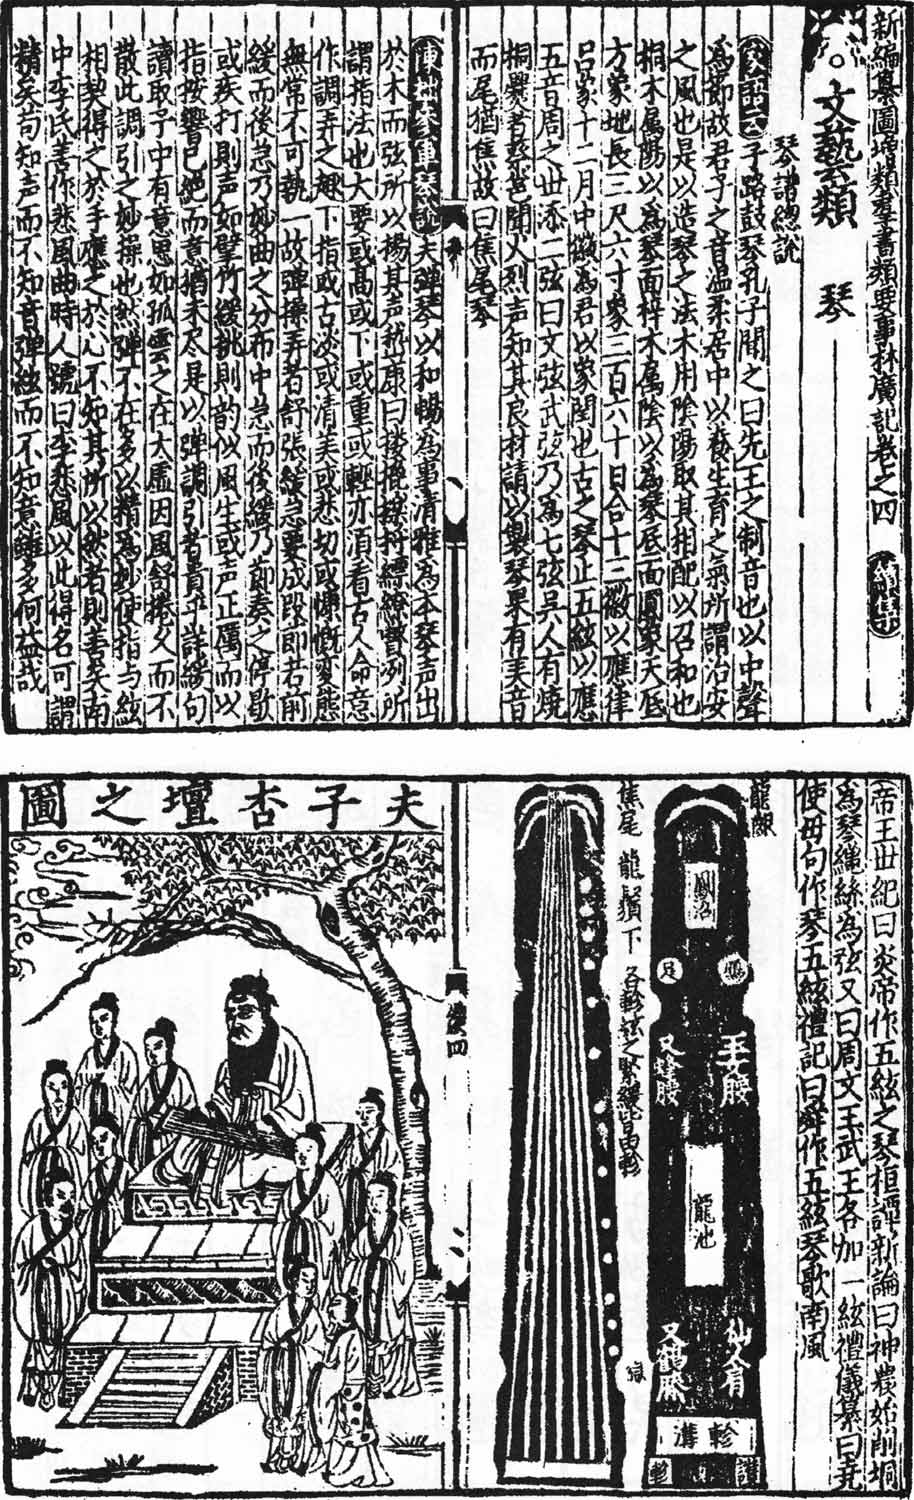 新編纂圖增類羣書類要事林廣記卷之四
文藝類 琴
琴譜總說
家語云子路鼓琴孔子聞之曰先王之制音也以中聲
為節故君子之音溫柔居中以養生育之氣所謂治安
之風也是以造琴之法木用陰陽取其相配以召和也
桐木屬陽以為琴面梓木屬陰以為琴底面圓象天底
方象地長三尺六寸象三百六十日合十三徽以應律
呂象十二月中徽為君以象閏也古之琴止五絃以應
五音周之世添二弦曰文弦武弦乃為七弦吳人有燒
桐爨者蔡邕聞火烈声知其良材請以製琴果有美音
而尾猶焦故曰焦尾琴
夫弹琴以和暢為事清雅為本琴声出
於木而弦所以揚其声嵇康曰摟㩢擽捋縹繚潎洌所
謂指法也大要或高或下或重或輕亦須看古人命意
作調弄之趣下指或古淡或清美或悲切或慷慨变態
無常不可執一故弹操弄者舒張緩急要成段即若前
緩而後急乃妙曲之分布中急而後緩乃節奏之停歇
或疾打則声如擘竹緩挑則韵似風生或声正厲而以
指按響已絕而意猶未尽是以弹調引者貴乎詳緩句
讀取予中有意思如孤雲之在太虛因風舒捲久而不
散此調引之妙操也然弹不在多以精為妙使指与絃
相契得之於手應之於心不知其所以然者則善矣南
中李氏善作悲風曲時人號曰李悲風以此得名可謂
精矣苟知声而不知音弹絃而不知意雖多何益哉
帝王世紀曰炎帝作五絃之琴桓譚新論曰神農始削桐
為琴繩絲為弦又曰周文王武王各加一絃禮儀纂曰堯
使毋句作琴五絃禮記曰舜作五絃琴歌南風
鳳沼
鴈
足
玉腰
又蜂腰
龍池
仙人肩
又鶴膝
軫溝
焦尾 龍鬚下 各軫絃之緊緩皆由軫
夫子杏壇之圖